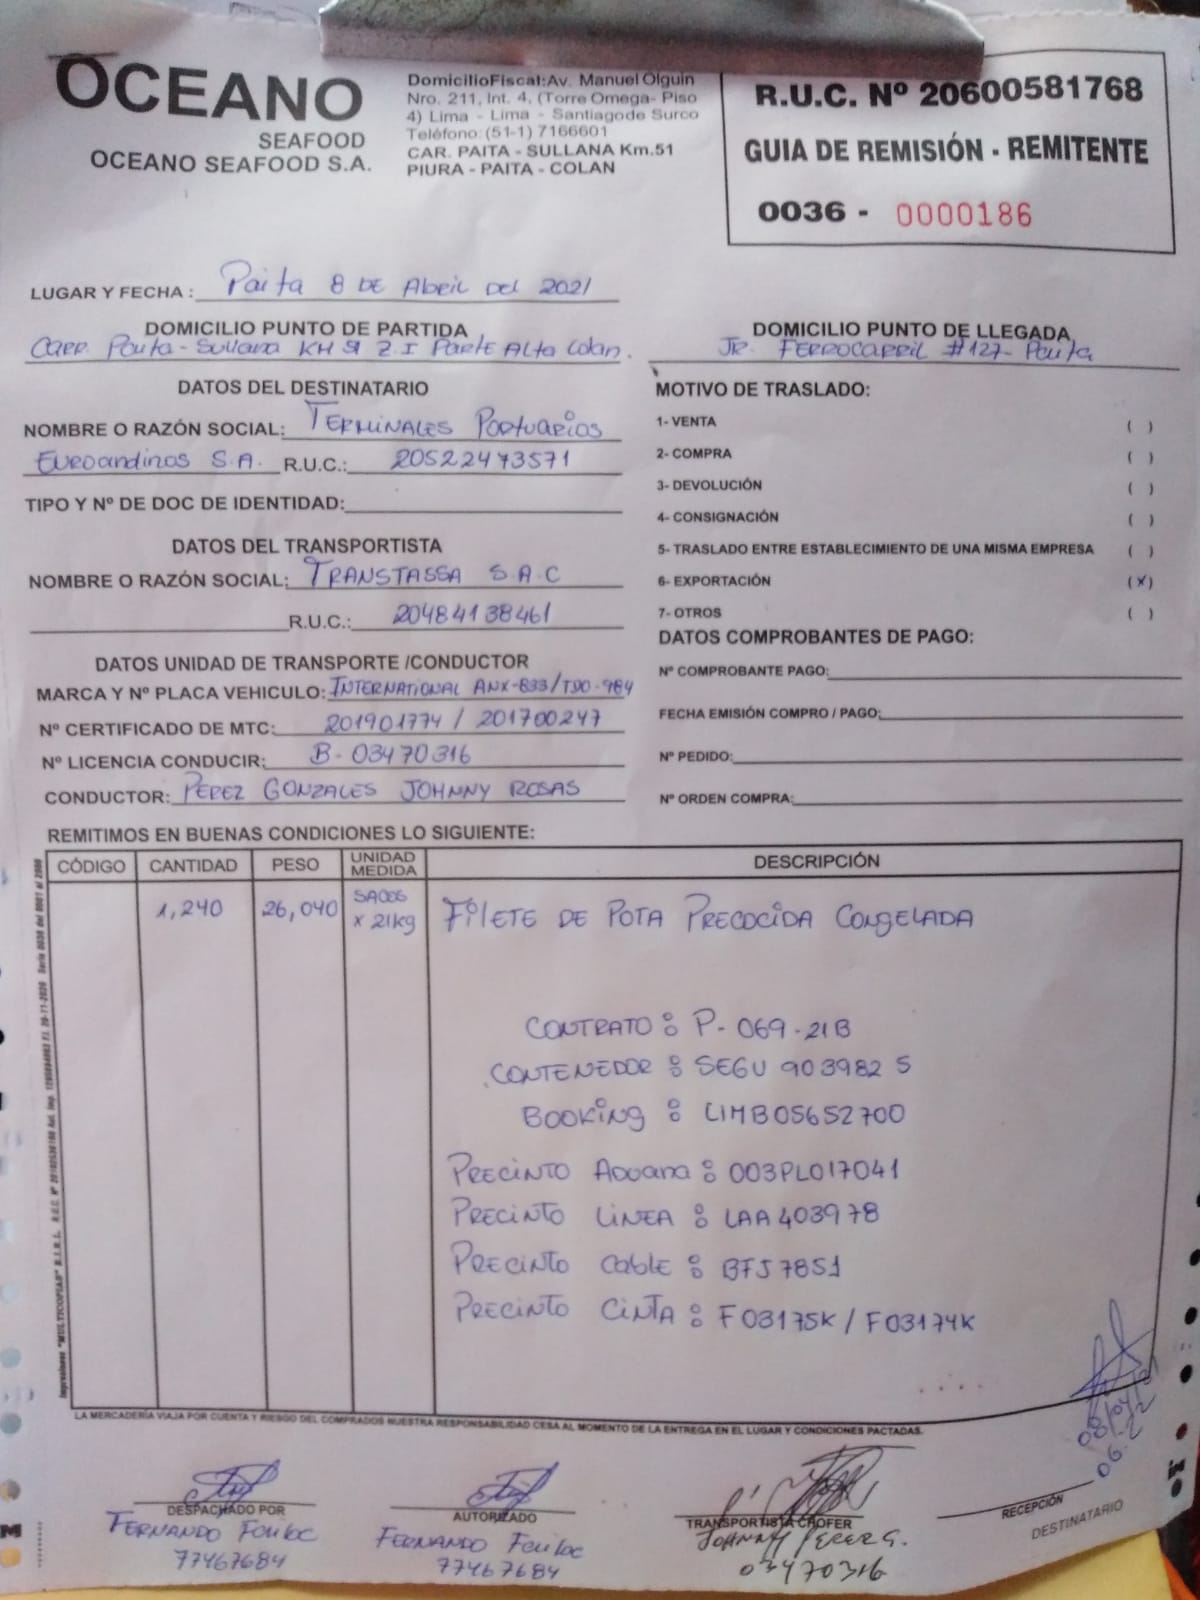 OCEANO
SEAFOOD
OCEANO SEAFOOD S.A.
DomicilioFiscal: Av. Manuel Olguin
Nro. 211, Int. 4, (Torre Omega- Piso
4) Lima - Lima - Santiagode Surco
Teléfono: (51-1) 7166601
CAR. PAITA - SULLANA Km.51
PIURA - PAITA - COLAN
R.U.C. Nº 20600581768
GUIA DE REMISIÓN - REMITENTE
0036 - 0000186
LUGAR Y FECHA : Paita 8 DE Abril Del 2021
DOMICILIO PUNTO DE PARTIDA
Carr. Paita - Sullana KM 51 Z.I Parte Alta Colan.
DOMICILIO PUNTO DE LLEGADA
JR. FERROCARRIL #127- Paita
DATOS DEL DESTINATARIO
NOMBRE O RAZÓN SOCIAL: TERMINALES PORTUARIOS
EUROANDINOS S.A. R.U.C.: 20522473571
TIPO Y Nº DE DOC DE IDENTIDAD:
DATOS DEL TRANSPORTISTA
NOMBRE O RAZÓN SOCIAL: TRANSTASSA S.A.C
R.U.C.: 20484138461
DATOS UNIDAD DE TRANSPORTE /CONDUCTOR
MARCA Y Nº PLACA VEHICULO: INTERNATIONAL ANX-833/TDO-984
Nº CERTIFICADO DE MTC: 201901774 / 201700247
Nº LICENCIA CONDUCIR: B- 03470316
CONDUCTOR: PEREZ GONZALES JOHNNY ROSAS
MOTIVO DE TRASLADO:
1- VENTA ( )
2- COMPRA ( )
3- DEVOLUCIÓN ( )
4- CONSIGNACIÓN ( )
5- TRASLADO ENTRE ESTABLECIMIENTO DE UNA MISMA EMPRESA ( )
6- EXPORTACIÓN (X)
7- OTROS ( )
DATOS COMPROBANTES DE PAGO:
Nº COMPROBANTE PAGO:
FECHA EMISIÓN COMPRO / PAGO:
Nº PEDIDO:
Nº ORDEN COMPRA:
REMITIMOS EN BUENAS CONDICIONES LO SIGUIENTE:
CÓDIGO CANTIDAD PESO UNIDAD MEDIDA DESCRIPCIÓN
1,240 26,040 SACOS x 21kg FILETE DE POTA PRECOCIDA CONGELADA
CONTRATO : P- 069-21B
CONTENEDOR : SEGU 903982 5
BOOKING : LIMB05652700
PRECINTO Aduana : 003PL017041
PRECINTO LINEA : LAA403978
PRECINTO Cable : BFJ7851
PRECINTO CINTA : F03175K / F03174K
08/04/21
06:22
LA MERCADERÍA VIAJA POR CUENTA Y RIESGO DEL COMPRADOS NUESTRA RESPONSABILIDAD CESA AL MOMENTO DE LA ENTREGA EN EL LUGAR Y CONDICIONES PACTADAS.
DESPACHADO POR
FERNANDO
77467684
AUTORIZADO
FERNANDO
77467684
TRANSPORTISTA CHOFER
JOHNNY PEREZ G.
03470316
RECEPCIÓN
DESTINATARIO